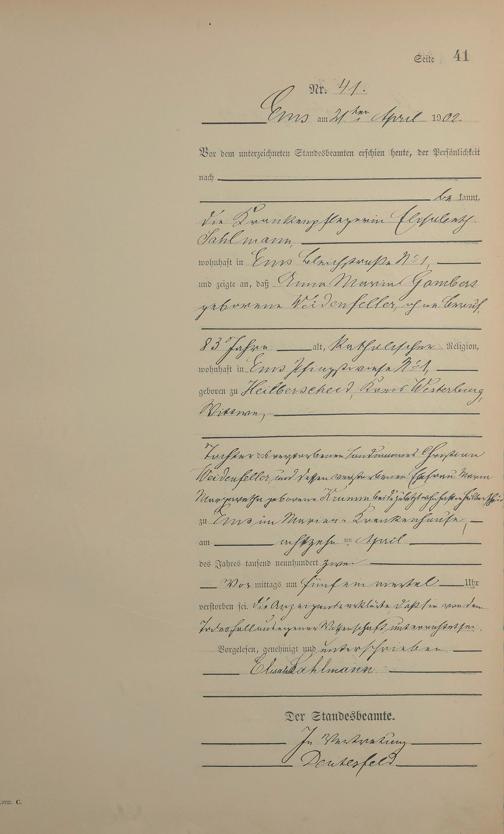 Seite 41
Nr. 41.
Ems am 21ten April 1902.
Vor dem unterzeichneten Standesbeamten erschien heute, der Persönlichkeit
nach
be kannt,
die Krankenpflegerin Elisabeth
Sahlmann
wohnhaft in Ems Bleichstraße No 1,
und zeigte an, daß Anna Maria Gombert
geborene Weidenfeller, ohne Beruf,
83 Jahre alt, katholischer Religion,
wohnhaft in Ems Pfingstwiese No 1,
geboren zu Heilberscheid, Kreis Westerburg,
Wittwe,
Tochter des verstorbenen Landmannes Christian
Weidenfeller, und dessen verstorbenen Ehefrau Maria
Margaretha geborene Krumm beide zuletzt wohnhaft in
zu Ems im Marien-Krankenhause,
am achtzehn ten April
des Jahres tausend neunhundert zwei
Vor mittags um fünf ein viertel Uhr
verstorben sei. Die Anzeigende erklärte daß sie von dem
Todesfall aus eigener Wissenschaft unterrichtet sei.
Vorgelesen, genehmigt und unterschrieben
Elisabeth Sahlmann
Der Standesbeamte.
In Vertretung
C.